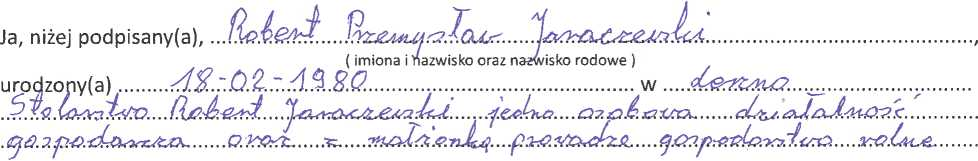 Ja, niżej podpisany(a), Robert Przemysław Janaczewski,
( imiona i nazwisko oraz nazwisko rodowe )
urodzony(a) 18-02-1980 w
Stolarstwo Robert Janaczewski jedno osobowa działalność
gospodarcza oraz z małżonką prowadzę gospodarstwo rolne